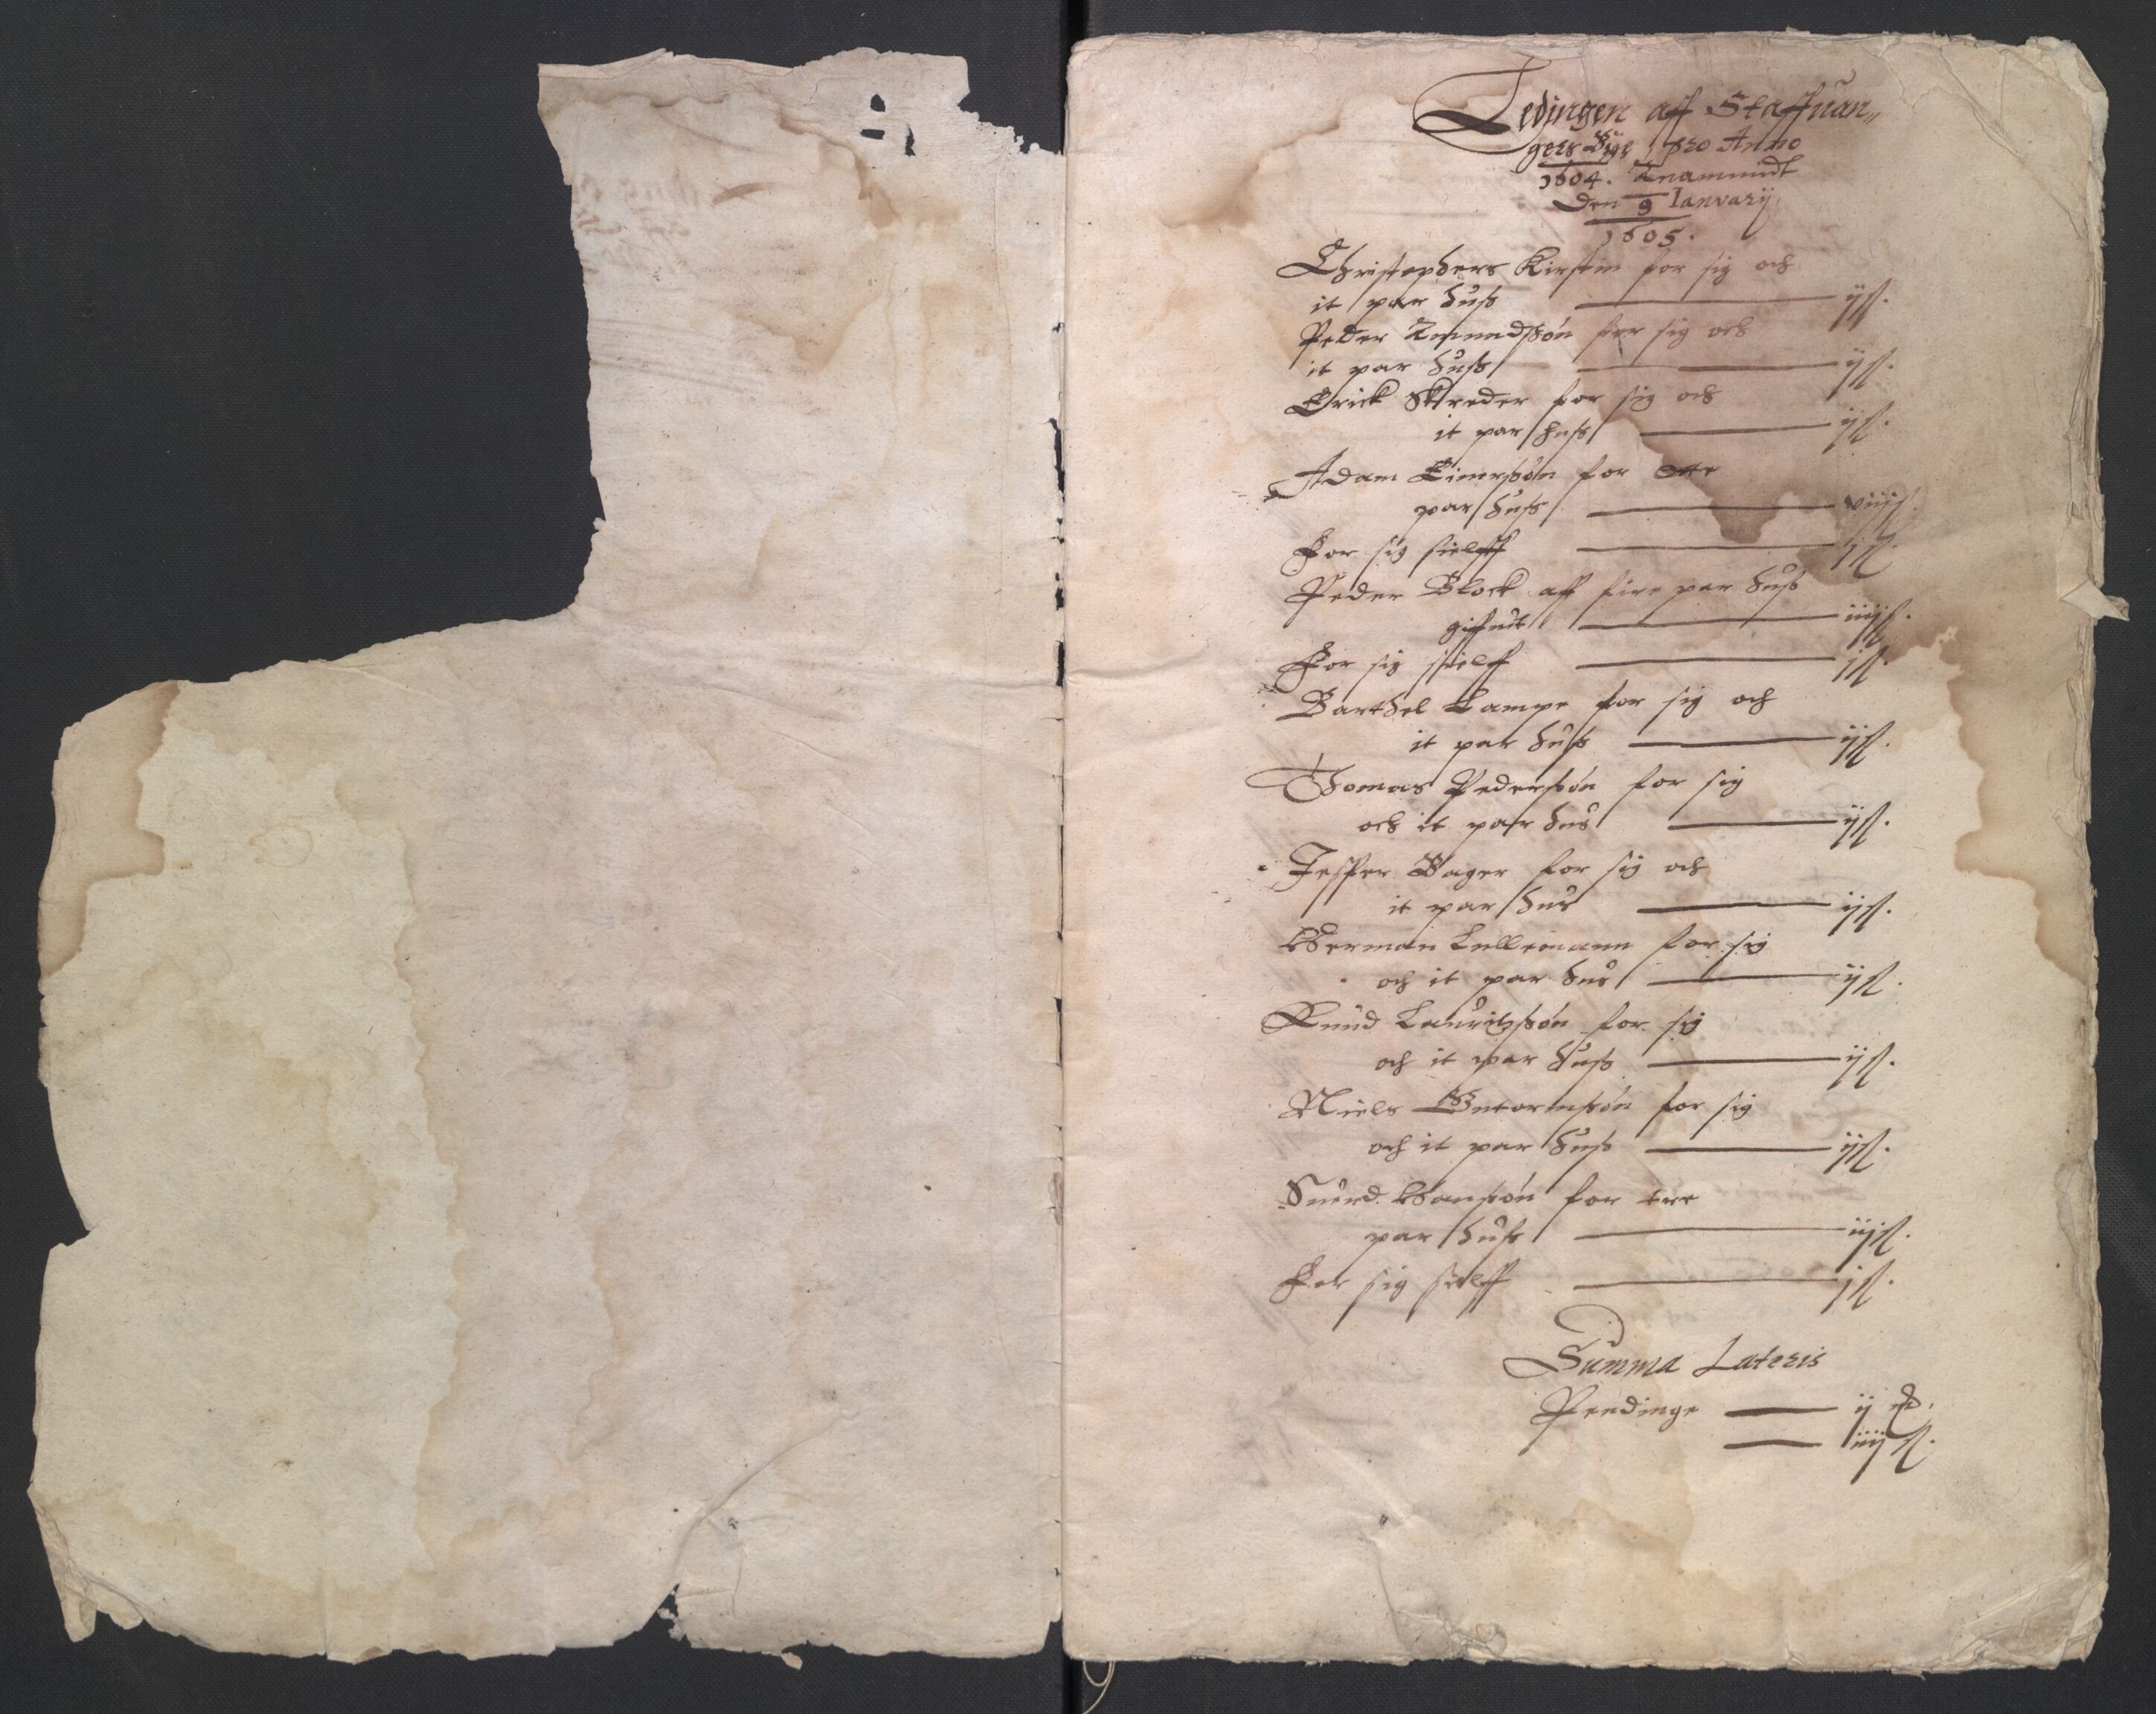 Ledingen aff Staffuan„
gers Bye, pro Anno
1604. Anammidt
Den 9 Ianuarij
1605.
Christophers Kirstin for sig och
it par huss ijß.
Peder Amundssøn for sig och
it par huss ijß.
Erick Skreder for sig och
it par huss ijß.
Adam Eimerssøn for otte
par huss viijß.
For sig sielff jß.
Peder Block aff fire par huss
giffuit iiijß.
For sig sielff jß.
Barthel Lampe for sig och
it par huss ijß.
Thomas Pederssøn for sig
och it par hus ijß.
Jesper Bager for sig och
it par hus ijß.
Herman Lullemann for sig
och it par hus ijß.
Knud Lauritzssøn for sig
och it par huss ijß.
Niels Gutormssøn for sig
och it par huss ijß.
Suend Hanssøn for tre
par huss iijß.
For sig sielff jß.
Summa Lateris
Pendinge ij
iiij ß.